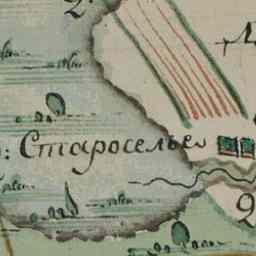 2.
: Староселье
2